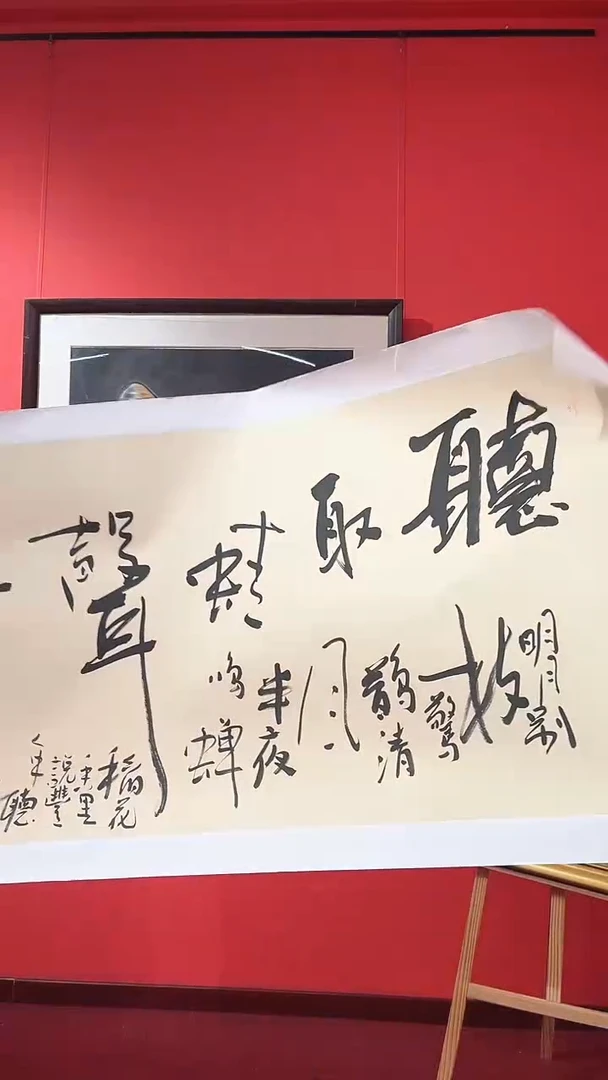 聽取蛙聲
明月別
枝
驚
鵲清
風
半夜
鳴蟬
稻花
香里
說豐
年聽